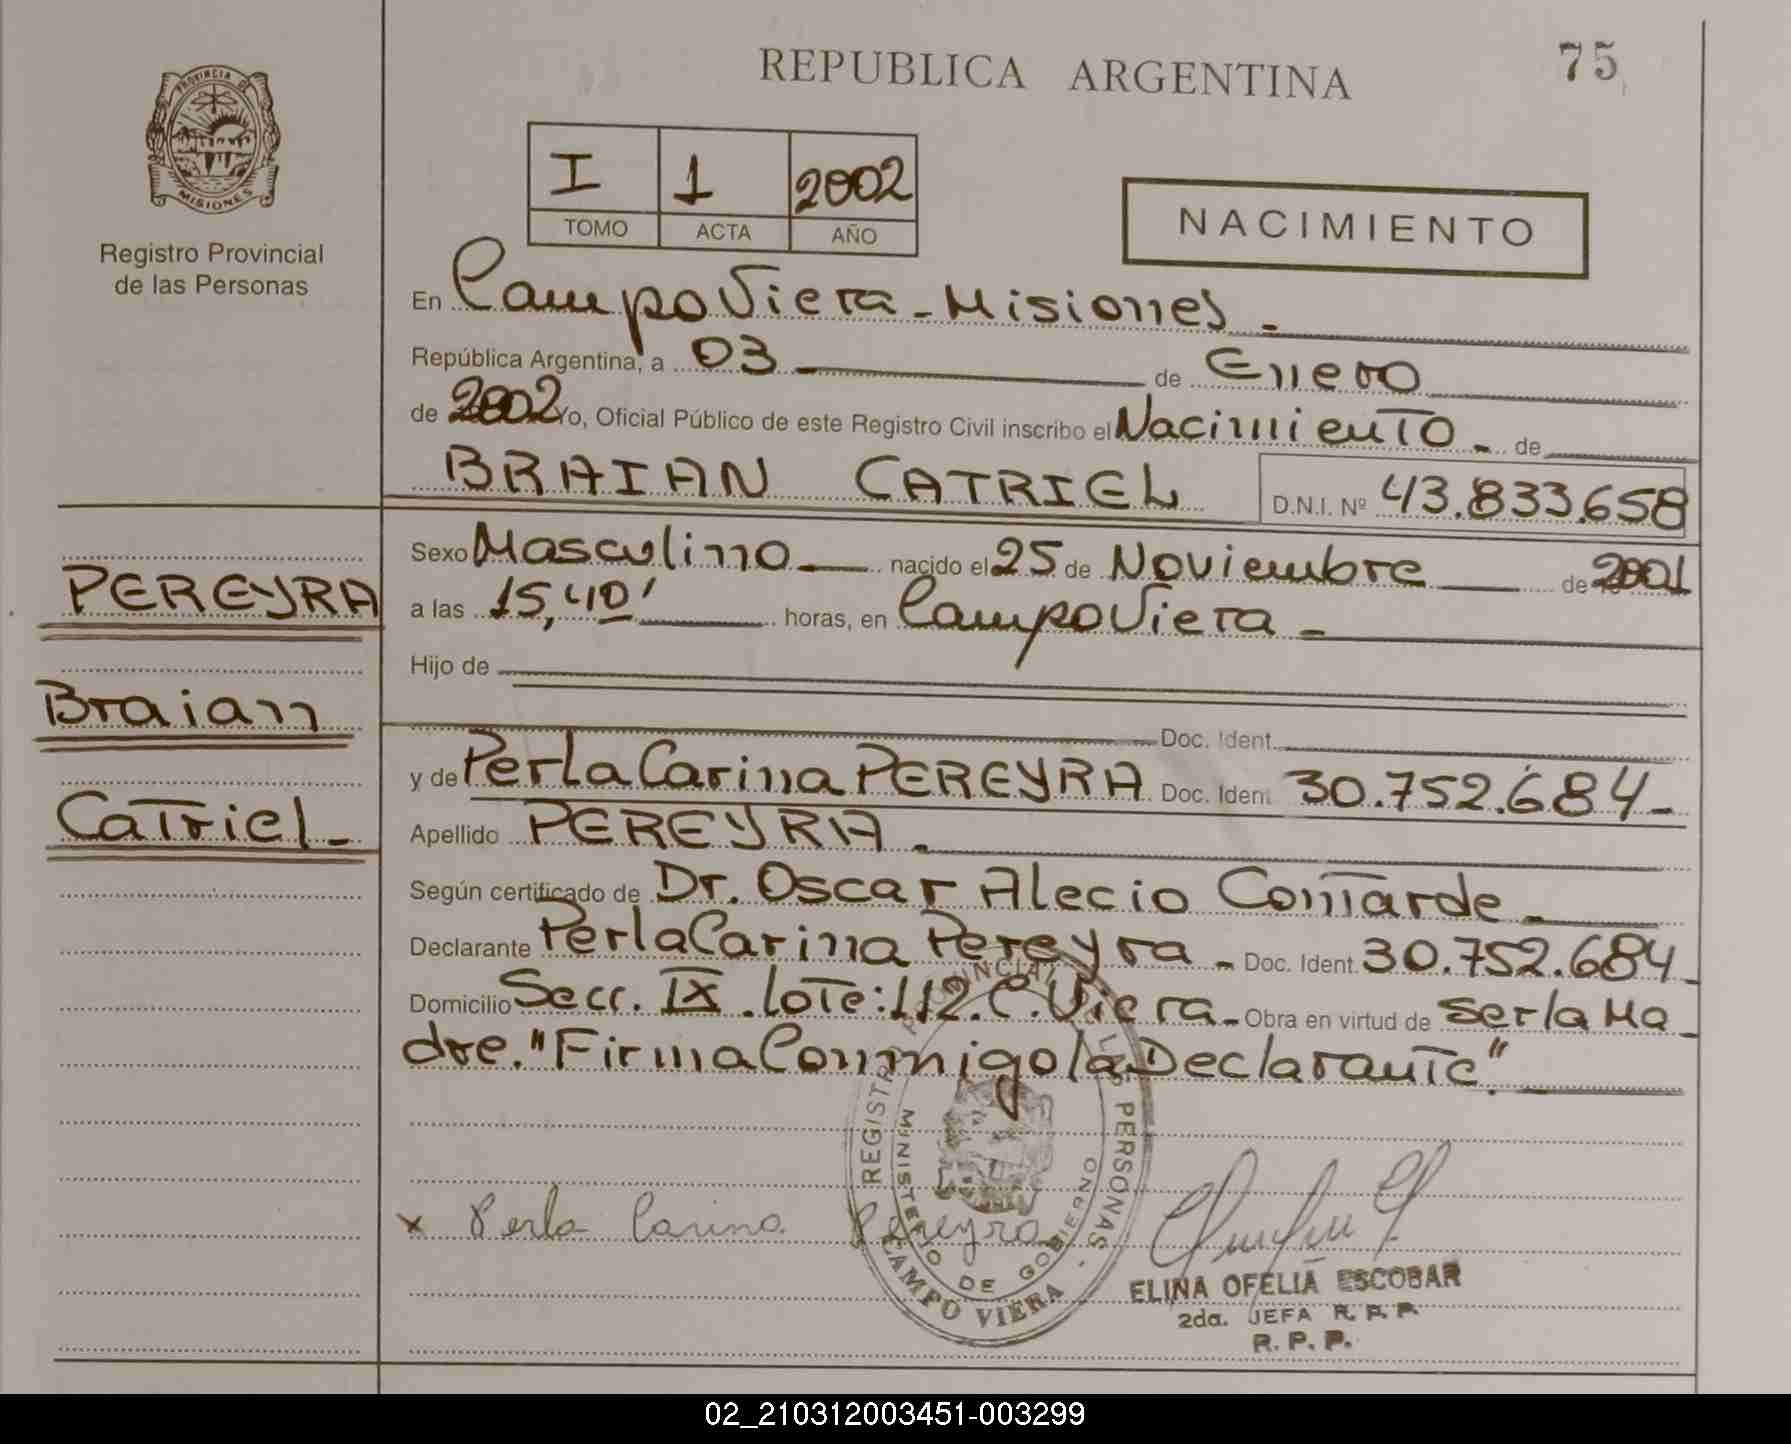 REPUBLICA ARGENTINA
75
PROVINCIA DE
MISIONES
Registro Provincial
de las Personas
I 1 2002
TOMO ACTA AÑO
NACIMIENTO
En Campo Viera - Misiones -
República Argentina, a 03 de Enero
de 2002 Yo, Oficial Público de este Registro Civil inscribo el Nacimiento - de
BRAIAN CATRIEL D.N.I. Nº 43.833.658
Sexo Masculino nacido el 25 de Noviembre de 2001
PEREYRA
a las 15,40' horas, en Campo Viera -
Hijo de
Braian
Doc. Ident.
y de Perla Carina PEREYRA Doc. Ident. 30.752.684-
Catriel -
Apellido PEREYRA -
Según certificado de Dr. Oscar Alecio Contarde -
Declarante Perla Carina Pereyra - Doc. Ident. 30.752.684-
Domicilio Secc. IX . Lote: 112. C. Viera - Obra en virtud de ser la Ma-
dre. "Firma Conmigo la Declarante".
REGISTRO PROVINCIAL DE LAS PERSONAS
MINISTERIO DE GOBIERNO
CAMPO VIERA
x Perla Carina Pereyra
ELINA OFELIA ESCOBAR
2da. JEFA R. P. P.
R. P. P.
02_210312003451-003299